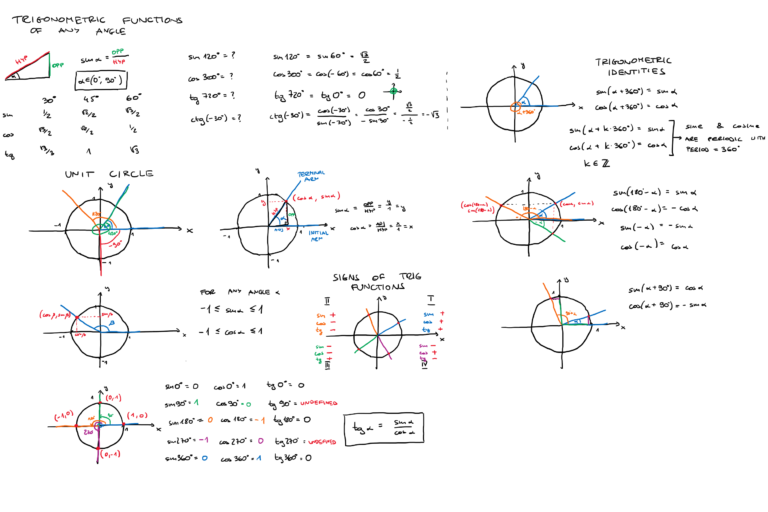 TRIGONOMETRIC FUNCTIONS
OF ANY ANGLE
HYP
OPP
α
sin α = OPP/HYP
α ∈ (0°, 90°)
30° 45° 60°
sin 1/2 √2/2 √3/2
cos √3/2 √2/2 1/2
tg √3/3 1 √3
sin 120° = ?
cos 300° = ?
tg 720° = ?
ctg(-30°) = ?
sin 120° = sin 60° = √3/2
cos 300° = cos(-60) = cos 60° = 1/2
tg 720° = tg 0° = 0
ctg(-30°) = cos(-30°)/sin(-30°) = cos 30°/-sin 30° = √3/2/-1/2 = -√3
y
x
α
α+360°
TRIGONOMETRIC
IDENTITIES
sin(α+360°) = sin α
cos(α+360°) = cos α
sin(α + k·360°) = sin α
cos(α + k·360°) = cos α
k ∈ ℤ
→ SINE & COSINE
ARE PERIODIC WITH
PERIOD = 360°
UNIT CIRCLE
y
1
-1 1 x
-90°
-1
TERMINAL
ARM
y
1
(cos α, sin α)
α
-1 x
INITIAL
ARM
-1
sin α = OPP/HYP = y/1 = y
cos α = ADJ/HYP = x/1 = x
y
x
sin(180°-α) = sin α
cos(180°-α) = -cos α
sin(-α) = -sin α
cos(-α) = cos α
y
1
(cos β, sin β)
β
-1 1 x
-1
FOR ANY ANGLE α
-1 ≤ sin α ≤ 1
-1 ≤ cos α ≤ 1
SIGNS OF TRIG
FUNCTIONS
II I
sin + sin +
cos - cos +
tg - tg +
x
sin - sin -
cos - cos +
tg + tg -
III IV
y
1
1 x
sin(α+90°) = cos α
cos(α+90°) = -sin α
y
(0,1)
(-1,0) (1,0)
270°
1 x
(0,-1)
sin 0° = 0 cos 0° = 1 tg 0° = 0
sin 90° = 1 cos 90° = 0 tg 90° = UNDEFINED
sin 180° = 0 cos 180° = -1 tg 180° = 0
sin 270° = -1 cos 270° = 0 tg 270° = UNDEFINED
sin 360° = 0 cos 360° = 1 tg 360° = 0
tg α = sin α/cos α